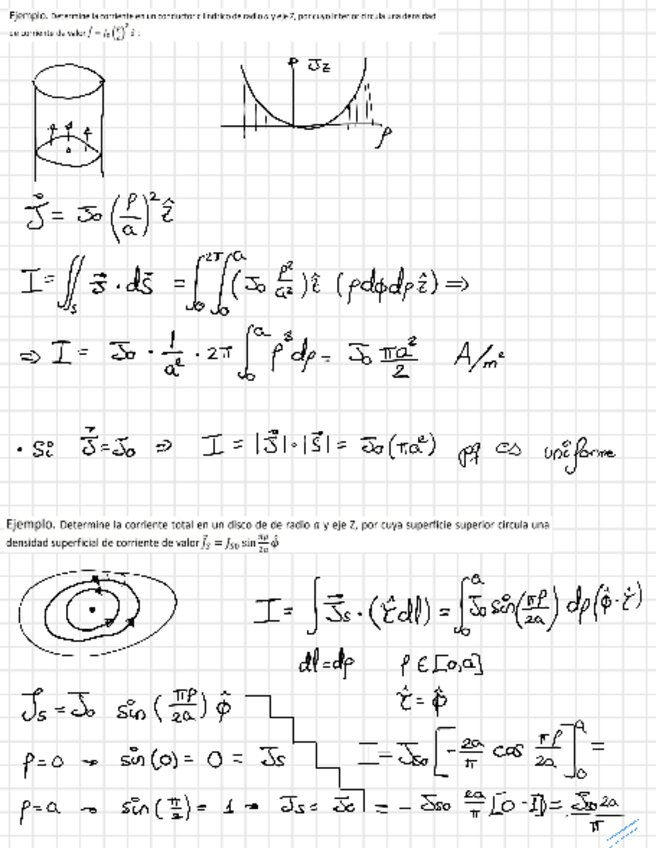 Ejemplo. Determine la corriente en un conductor cilíndrico de radio a y eje Z, por cuyo interior circula una densidad
de corriente de valor J = J₀(ρ/a)² ẑ :
Jz
ρ
J⃗ = J₀ (ρ/a)² ẑ
I = ∬ₛ J⃗ · dS⃗ = ∫₀^2π ∫₀^a (J₀ ρ²/a²) ẑ (ρdϕdρẑ) ⇒
⇒ I = J₀ · 1/a² · 2π ∫₀^a ρ³dρ = J₀ πa²/2 A/m²
· Si J⃗ = J₀ ⇒ I = |J⃗|·|S⃗| = J₀(πa²) pq es uniforme
Ejemplo. Determine la corriente total en un disco de de radio a y eje Z, por cuya superficie superior circula una
densidad superficial de corriente de valor J⃗s = Js₀ sin πρ/2a ϕ̂
I = ∫ J⃗s · (τ̂dl) = ∫₀^a J₀ sin(πρ/2a) dρ(ϕ̂·τ̂)
dl = dρ ρ ∈ [0,a]
τ̂ = ϕ̂
Js = J₀ sin(πρ/2a) ϕ̂
ρ=0 → sin(0) = 0 = Js
I = Js₀ [-2a/π cos πρ/2a]₀^a =
ρ=a → sin(π/2) = 1 → Js = J₀
= - Js₀ 2a/π [0-1] = Js₀2a/π